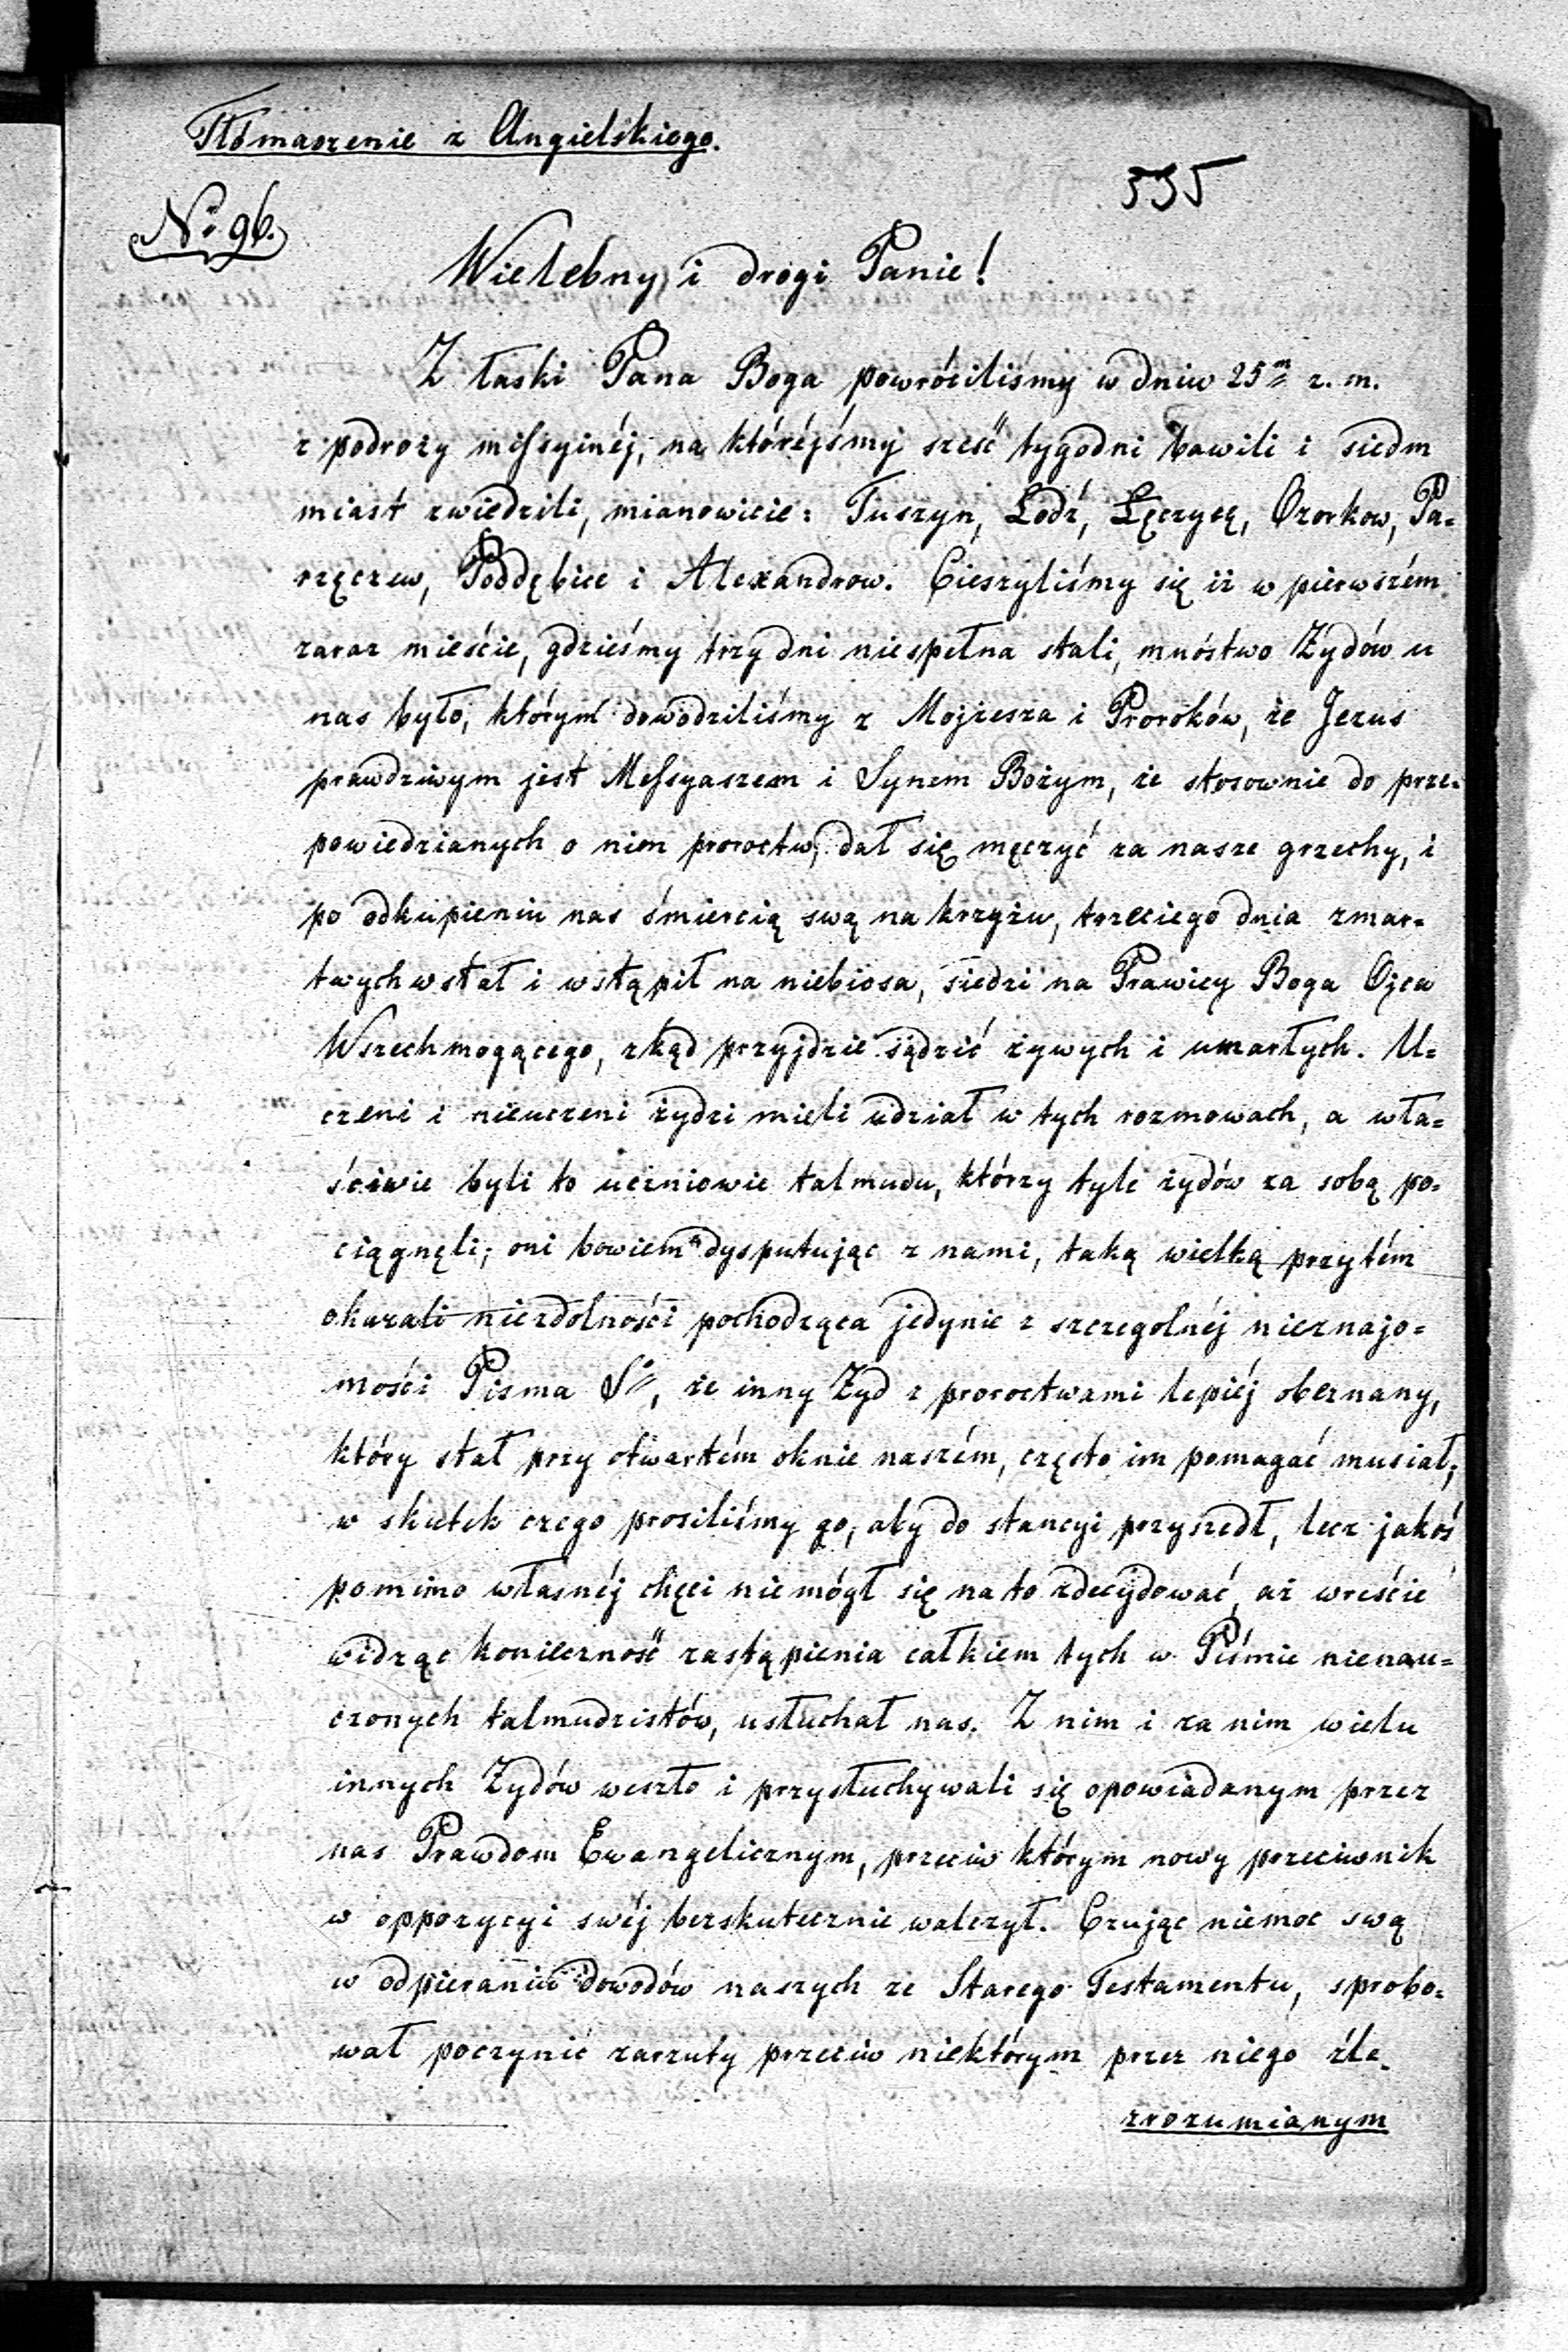 Tłómaszenie z Angielskiego.
535
No 96.
Wielebny i drogi Panie!
Z łaski Pana Boga powróciliśmy w dniu 25m z. m.
z podroży missyinéj, na któréjśmy sześć tygodni bawili i siedm
miast zwiedzili, mianowicie: Tuszyn, Łodź, Łęczycę, Ozorkow, Pa=
rzęczew, Poddębice i Alexandrow. Cieszyliśmy się iż w pierwszém
zaraz mieście, gdzieśmy trzy dni niespełna stali, mnóstwo Żydów u
nas było, którym dowodziliśmy z Mojżesza i Proroków, że Jezus
prawdziwym jest Messyaszem i Synem Bożym, że stosownie do prze=
powiedzianych o nim proroctw, dał się męczyć za nasze grzechy, i
po odkupieniu nas śmiercią swą na krzyżu, trzeciego dnia zmar=
twychwstał i wstąpił na niebiosa, siedzi na Prawicy Boga Ojca
Wszechmogącego, zkąd przyjdzie sądzić żywych i umarłych. U=
czeni i nieuczeni żydzi mieli udział w tych rozmowach, a wła=
ściwie byli to uczniowie talmudu, którzy tyle żydów za sobą po=
ciągnęli; oni bowiem dysputując z nami, taką wielką przytém
okazali niezdolności pochodząca jedynie z szczegolnéj nieznajo=
mości Pisma Sgo, że inny Żyd z proroctwami lepiéj obeznany,
który stał przy otwartém oknie naszém, często im pomagać musiał;
w skutek czego prosiliśmy go, aby do stancyi przyszedł, lecz jakoś
pomimo własnéj chęci nie mógł się na to zdecydować, aż wreście
widząc konieczność zastąpienia całkiem tych w Piśmie nienau=
czonych talmudzistów, usłuchał nas. Z nim i za nim wielu
innych Żydów weszło i przysłuchywali się opowiadanym przez
nas Prawdom Ewangelicznym, przeciw którym nowy przeciwnik
w oppozycyi swéj bezskutecznie walczył. Czując niemoc swą
w odpieraniu dowodów naszych ze Starego Testamentu, sprobo=
wał poczynić zarzuty przeciw niektórym przez niego źle
zrozumianym